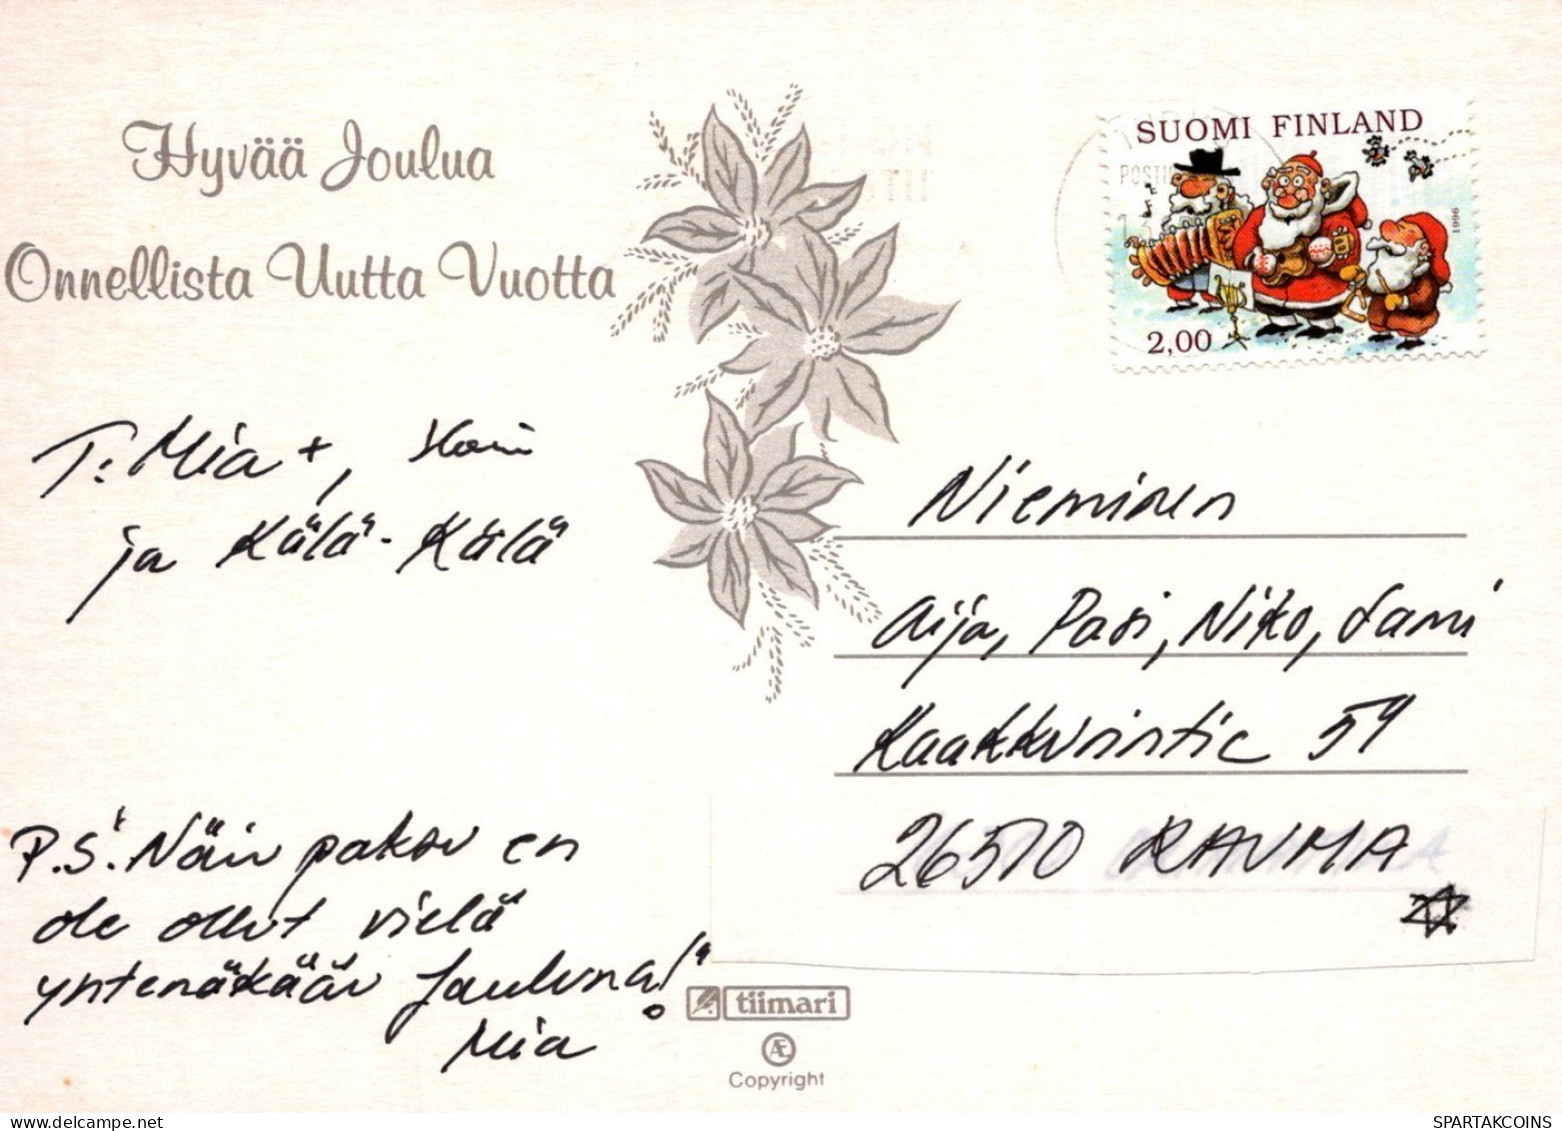 Hyvää Joulua
Onnellista Uutta Vuotta
SUOMI FINLAND
1996
2,00
POSTI
T: Mia +,
ja Kälä-Kälä
P.S. "Näin pakov en
ole ollut vielä
yhtenäkään Jouluna!"
Mia
Nieminen
Aija, Pasi, Niko, Sami
54
26510 RAUMA
tiimari
Æ
Copyright
SPARTAKCOINS